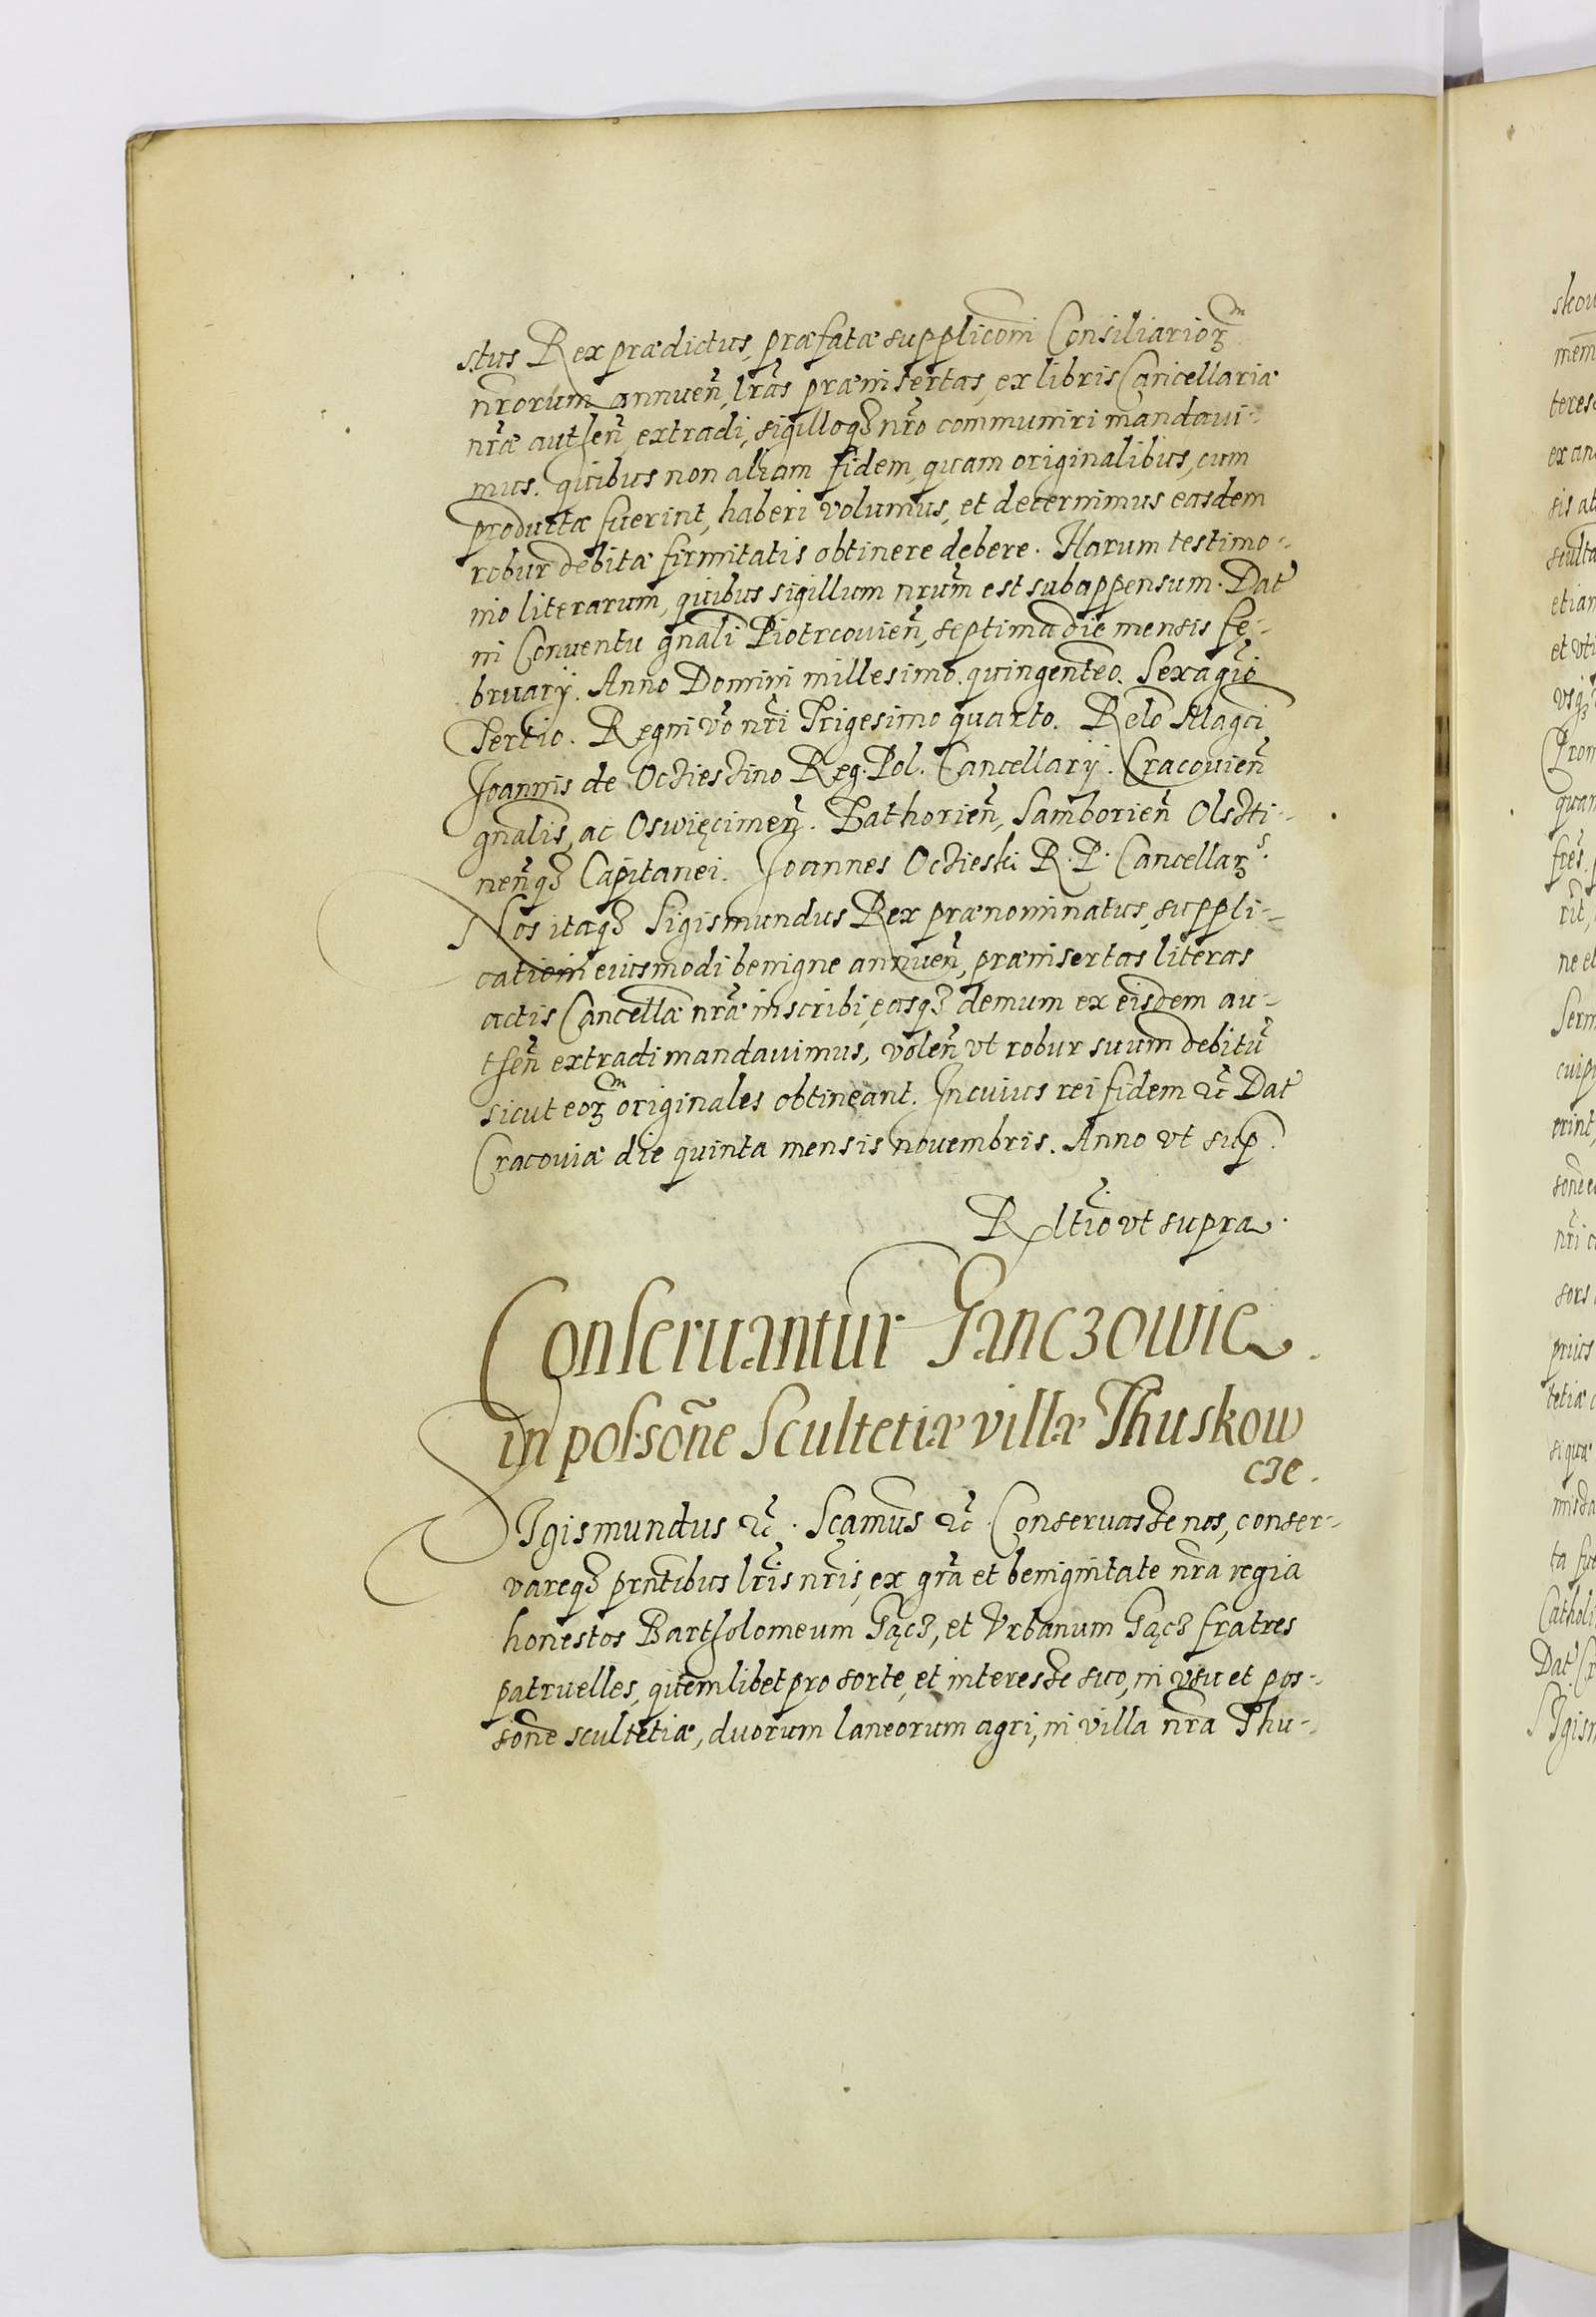 stus Rex prædictus, præfatæ supplicõni Consiliarioꝝ
nr̃orum annueñ, lr̃as præinsertas, ex libris Cancellariæ
nr̃æ autheñ extradi, sigilloqꝫ nr̃o communiri mandaui-
mus. quibus non aliam fidem, quam originalibus, cum
productæ fuerint, haberi volumus, et decernimus easdem
robur debitæ firmitatis obtinere debere. Harum testimo-
nio literarum, quibus sigillum nrũm est subappensum. Dat
in Conuentu gnãli Piotrcouieñ, septima die mensis fe-
bruarij. Anno Domini millesimo. quingenteõ. Sexagiõ
Tertio. Regni võ nr̃i Trigesimo quarto. Relõ Magci
Joannis de Ocziesszino Reg. Pol. Cancellarij. Cracouieñ
gnãlis, ac Oswięcimeñ. Bathorieñ, Samborieñ Olszti-
neñqꝫ Capitanei. Joannes Oczieski R. P. Cancellarꝫs.
Nos itaqꝫ Sigismundus Rex prænominatus, suppli-
cationi eiusmodi benigne annueñ, præinsertas literas
actis Cancellæ nr̃æ inscribi, easqꝫ demum ex eisdem au-
theñ extradi mandauimus, voleñ vt robur suum debitũ
sicut eoꝝ originales obtineant. In cuius rei fidem ec̃ Dat
Cracouiæ die quinta mensis nouembris. Anno vt sup.
Rltiõ vt supra.
Conseruantur Ganczowie.
in possõne Scultetiæ villæ Thuskow
cze.
Sigismundus ec̃. Scamus ec̃. Conseruasse nos, conser-
vareqꝫ prntibus lr̃is nr̃is, ex gr̃a et benignitate nr̃a regia
honestos Bartholomeum Gącꝫ, et Vrbanum Gącꝫ fratres
patruelles, quemlibet pro sorte, et interesse suo, in vsu et pos-
sõne scultetiæ, duorum laneorum agri, in villa nr̃a Thu-